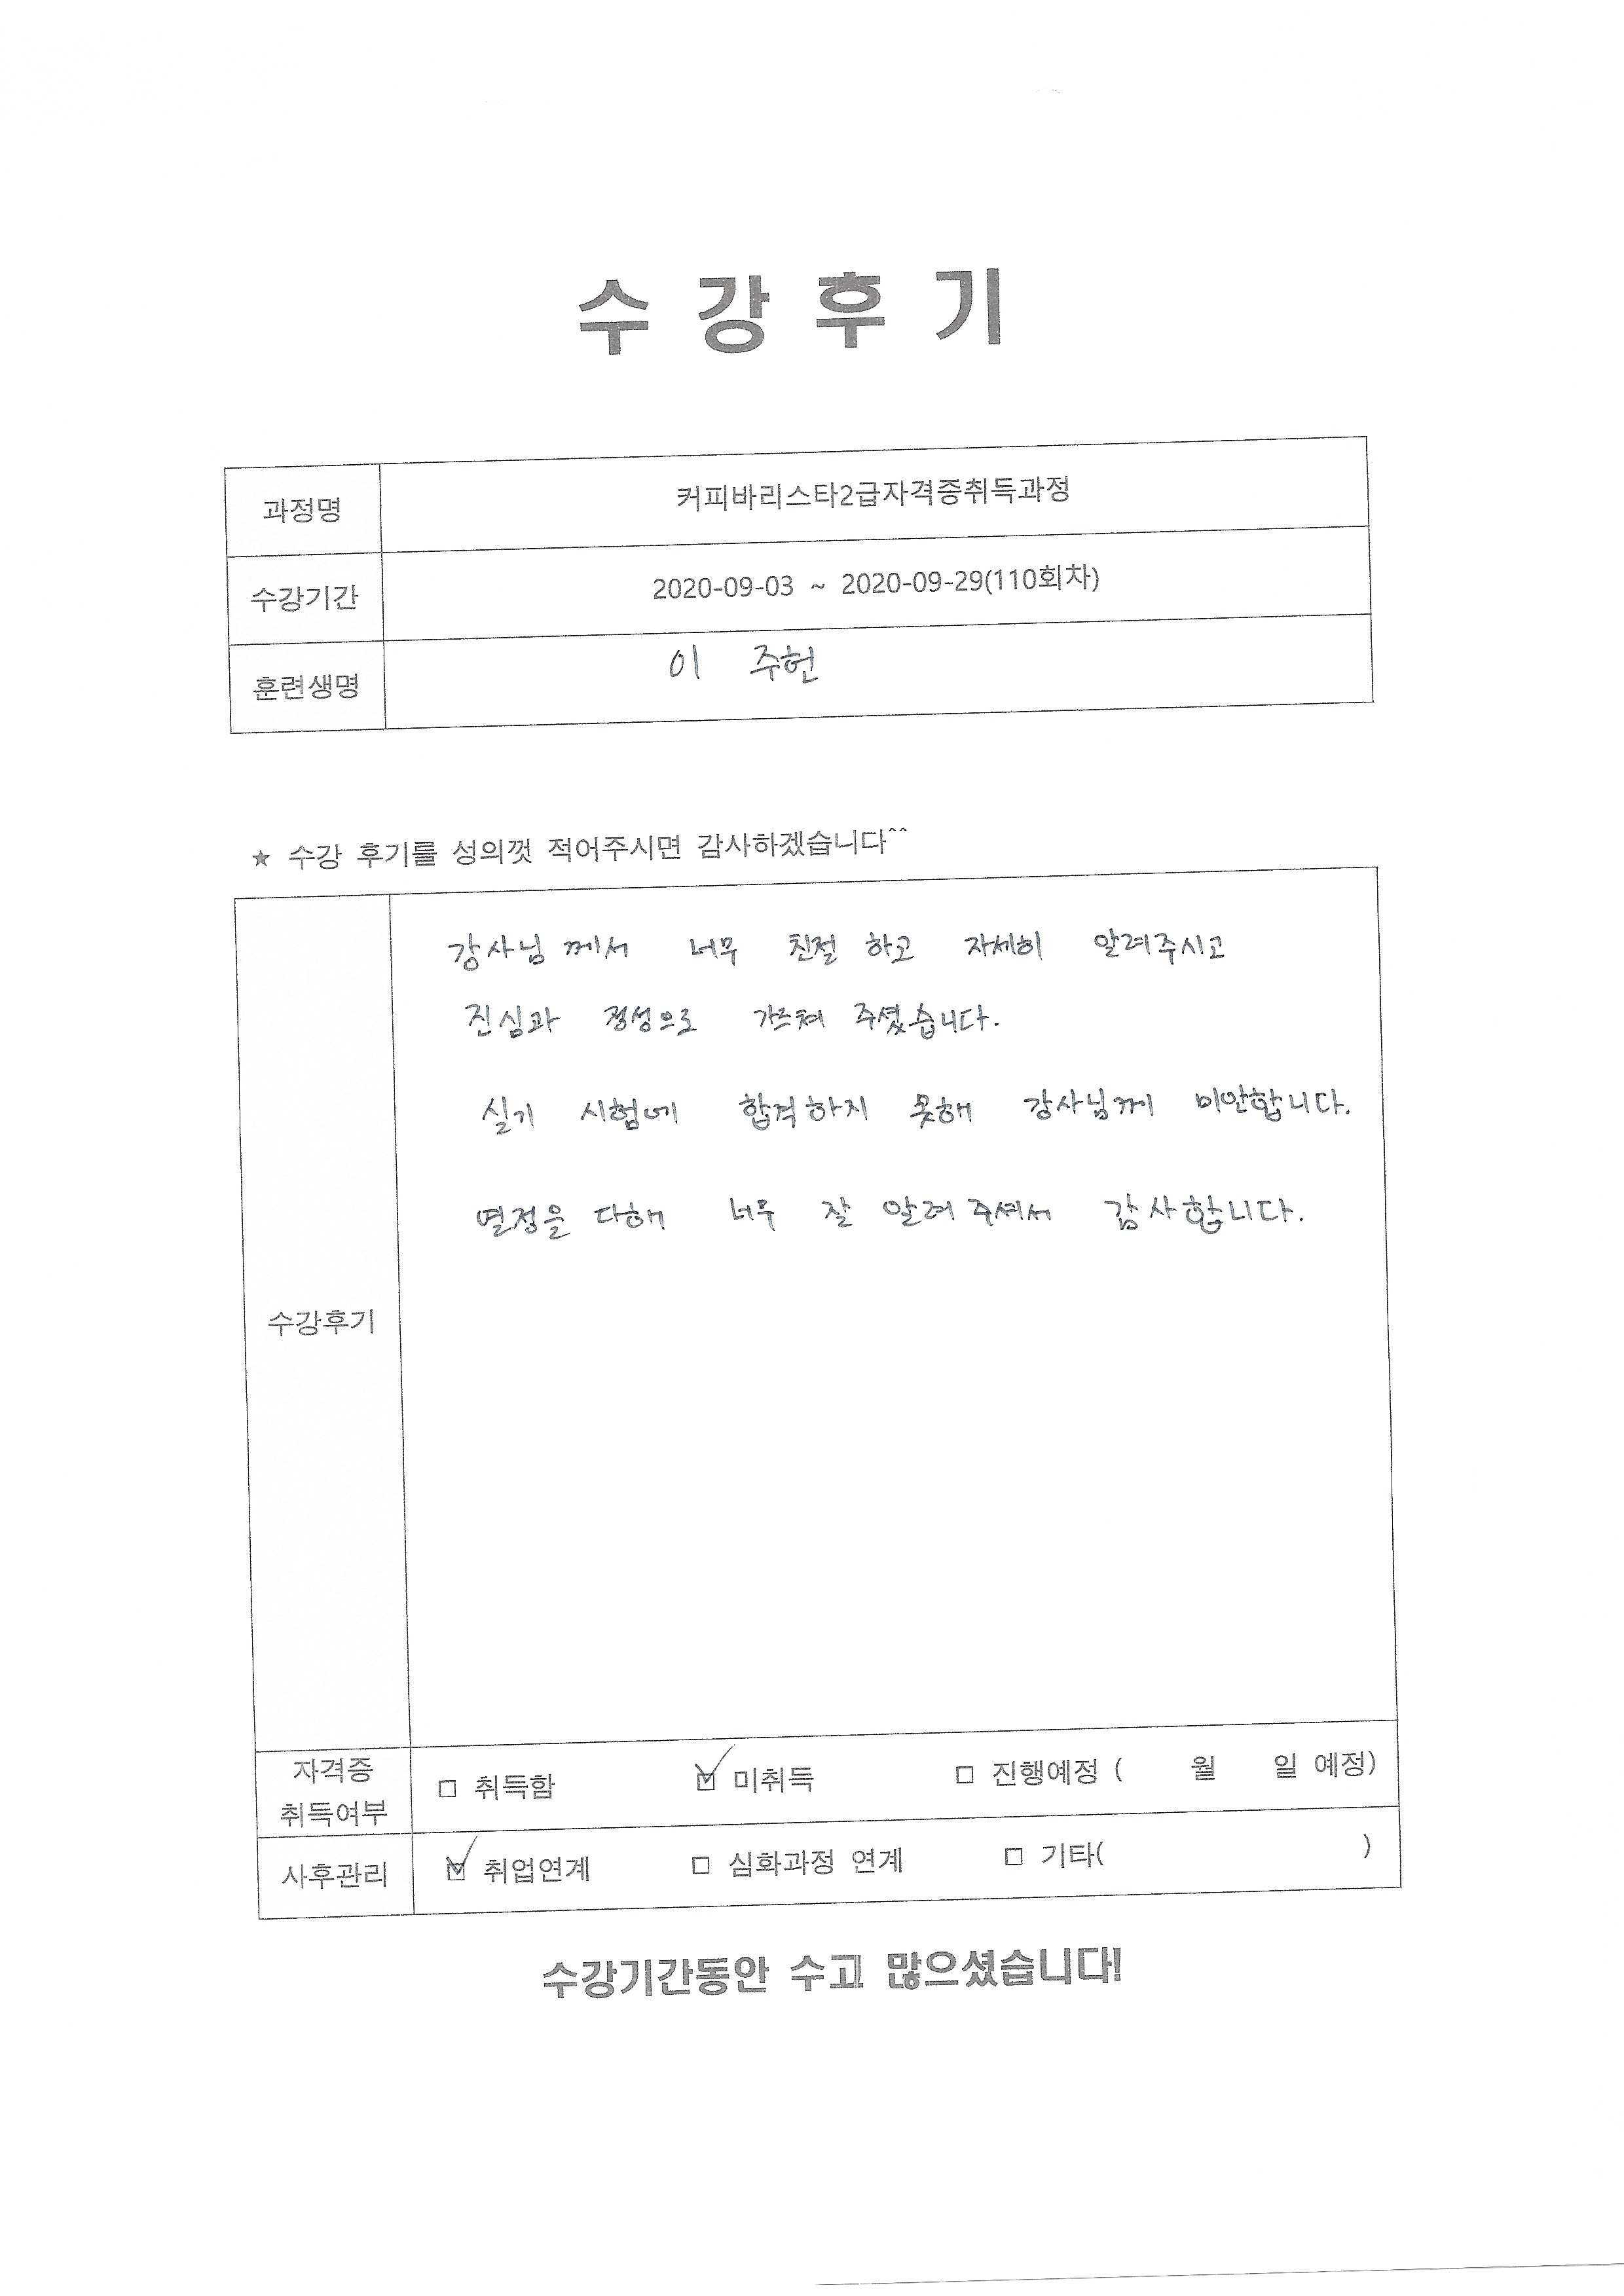 수 강 후 기
과정명 커피바리스타2급자격증취득과정
수강기간 2020-09-03 ~ 2020-09-29(110회차)
훈련생명 이 주헌
★ 수강 후기를 성의껏 적어주시면 감사하겠습니다^^
강사님 께서 너무 친절 하고 자세히 알려주시고
진심과 정성으로 가르쳐 주셨습니다.
실기 시험에 합격하지 못해 강사님께 미안합니다.
열정을 다해 너무 잘 알려 주셔서 감사합니다.
수강후기
자격증
취득여부
□ 취득함 ☑ 미취득 □ 진행예정 ( 월 일 예정)
사후관리 ☑ 취업연계 □ 심화과정 연계 □ 기타( )
수강기간동안 수고 많으셨습니다!